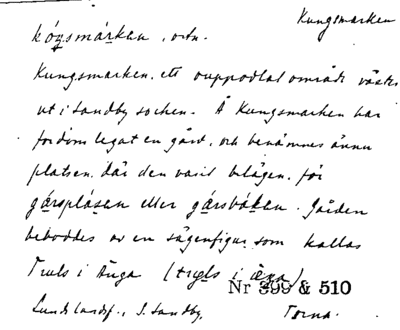 Kungsmarken
kóŋsmárken, ortn.
Kungsmarken. ett ouppodlat område väster
ut i Sandby socken. Å Kungsmarken har
fordom legat en gård, och benämnes ännu
platsen, där den varit belägen, för
gársplásen eller gársbáken. Gården
beboddes av en sägenfigur som kallas
Truls i Änga (tryls i æŋa)
Nr 399 & 510
Lunds landsf., S. Sandby, Torna.